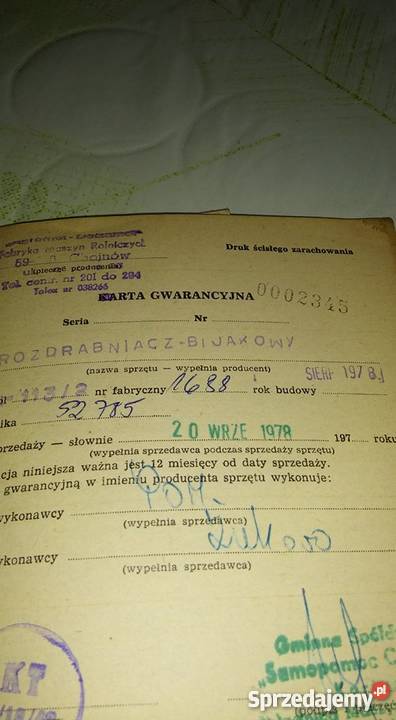 Fabryka Maszyn Rolniczych
59 Chojnów
Tel. centr. nr 201 do 204
Telex nr 038266
Druk ścisłego zarachowania
KARTA GWARANCYJNA 0002345
Seria Nr
ROZDRABNIACZ-BIJAKOWY
(nazwa sprzętu — wypełnia producent)
113/2 nr fabryczny 1688 rok budowy SIERP 1978
ika 52785
przedaży — słownie 20 WRZE 1978 197 roku
(wypełnia sprzedawca podczas sprzedaży sprzętu)
cja niniejsza ważna jest 12 miesięcy od daty sprzedaży.
gwarancyjną w imieniu producenta sprzętu wykonuje:
wykonawcy POM
(wypełnia sprzedawca)
wykonawcy Żukowo
(wypełnia sprzedawca)
Gminna Spółdz
"Samopomoc C
KT
Sprzedajemy.pl